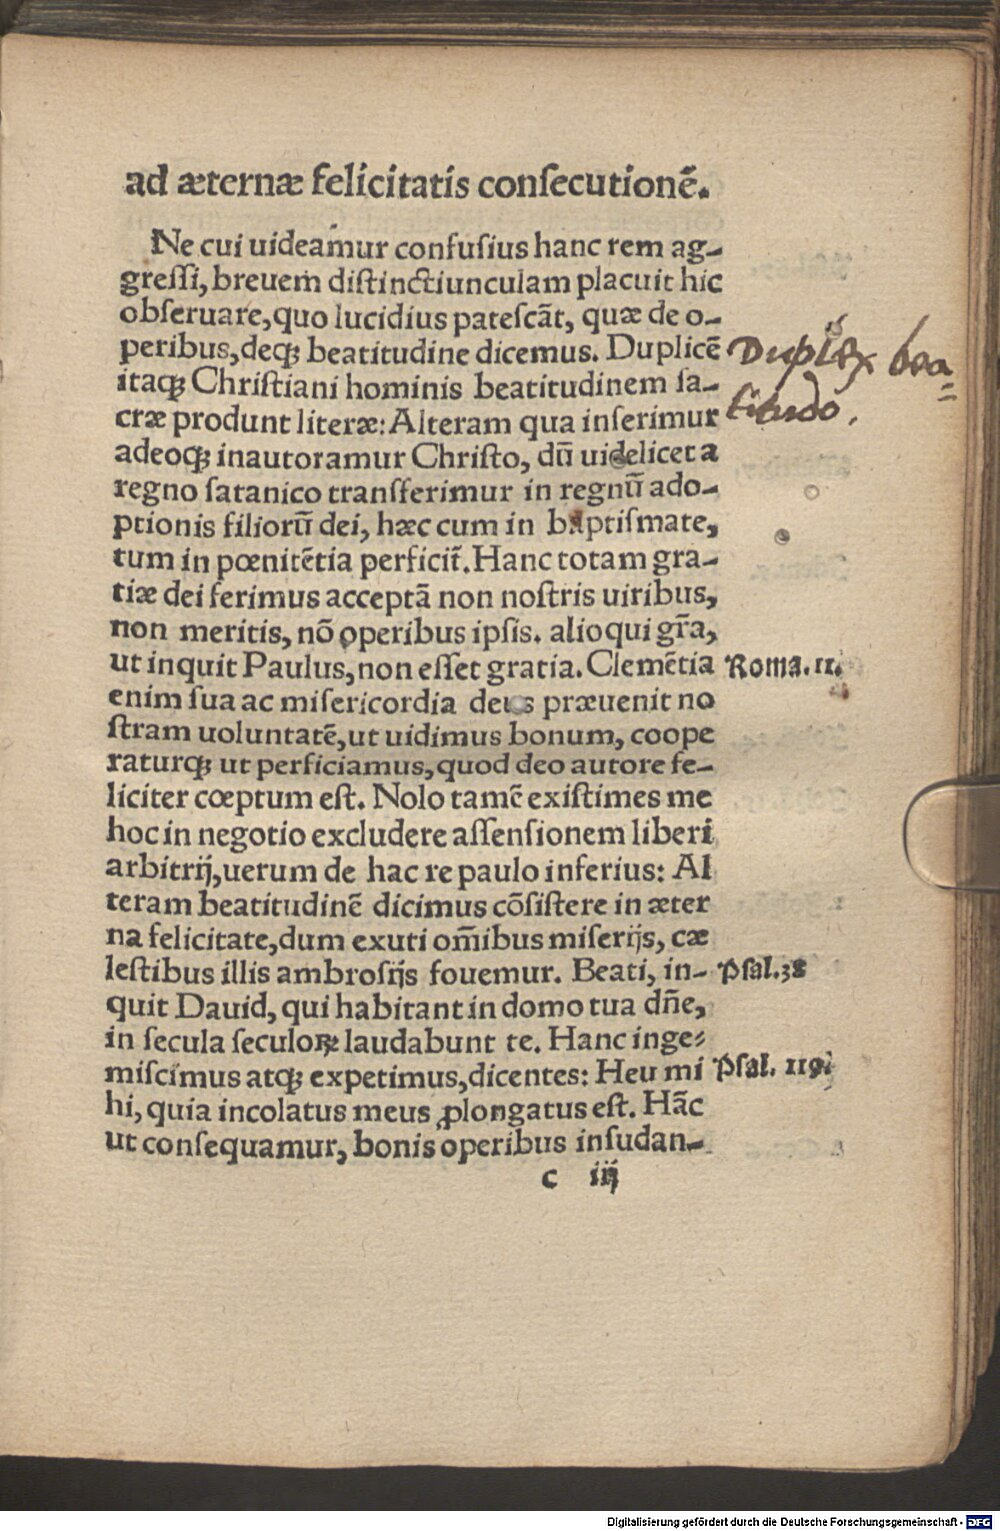 ad æternæ felicitatis conſecutionẽ.
Ne cui uideamur confuſius hanc rem ag-
greſſi, breuem diſtinctiunculam placuit hic
obſeruare, quo lucidius pateſcãt, quæ de o-
peribus, deqꝫ beatitudine dicemus. Duplicẽ
itaqꝫ Chriſtiani hominis beatitudinem ſa-
cræ produnt literæ: Alteram qua inſerimur
adeoqꝫ inautoramur Chriſto, dũ uidelicet a
regno ſatanico transferimur in regnũ ado-
ptionis filiorũ dei, hæc cum in baptiſmate,
tum in pœnitẽtia perficit̃. Hanc totam gra-
tiæ dei ferimus acceptã non noſtris uiribus,
non meritis, nõ operibus ipſis. alioqui gr̃a,
ut inquit Paulus, non eſſet gratia. Clemẽtia
enim ſua ac miſericordia deus præuenit no
ſtram uoluntatẽ, ut uidimus bonum, coope
raturqꝫ ut perficiamus, quod deo autore fe-
liciter cœptum eſt. Nolo tamẽ exiſtimes me
hoc in negotio excludere aſſenſionem liberi
arbitrij, uerum de hac re paulo inferius: Al
teram beatitudinẽ dicimus cõſiſtere in æter
na felicitate, dum exuti om̃ibus miſerijs, cæ
leſtibus illis ambroſijs fouemur. Beati, in-
quit Dauid, qui habitant in domo tua dñe,
in ſecula ſeculoꝝ laudabunt te. Hanc inge-
miſcimus atqꝫ expetimus, dicentes: Heu mi
hi, quia incolatus meus ꝓlongatus eſt. Hãc
ut conſequamur, bonis operibus inſudan-
c iij
Duplex bea
=
titudo.
Roma. 11.
Pſal. 38
Pſal. 119.
Digitalisierung gefördert durch die Deutsche Forschungsgemeinschaft - DFG